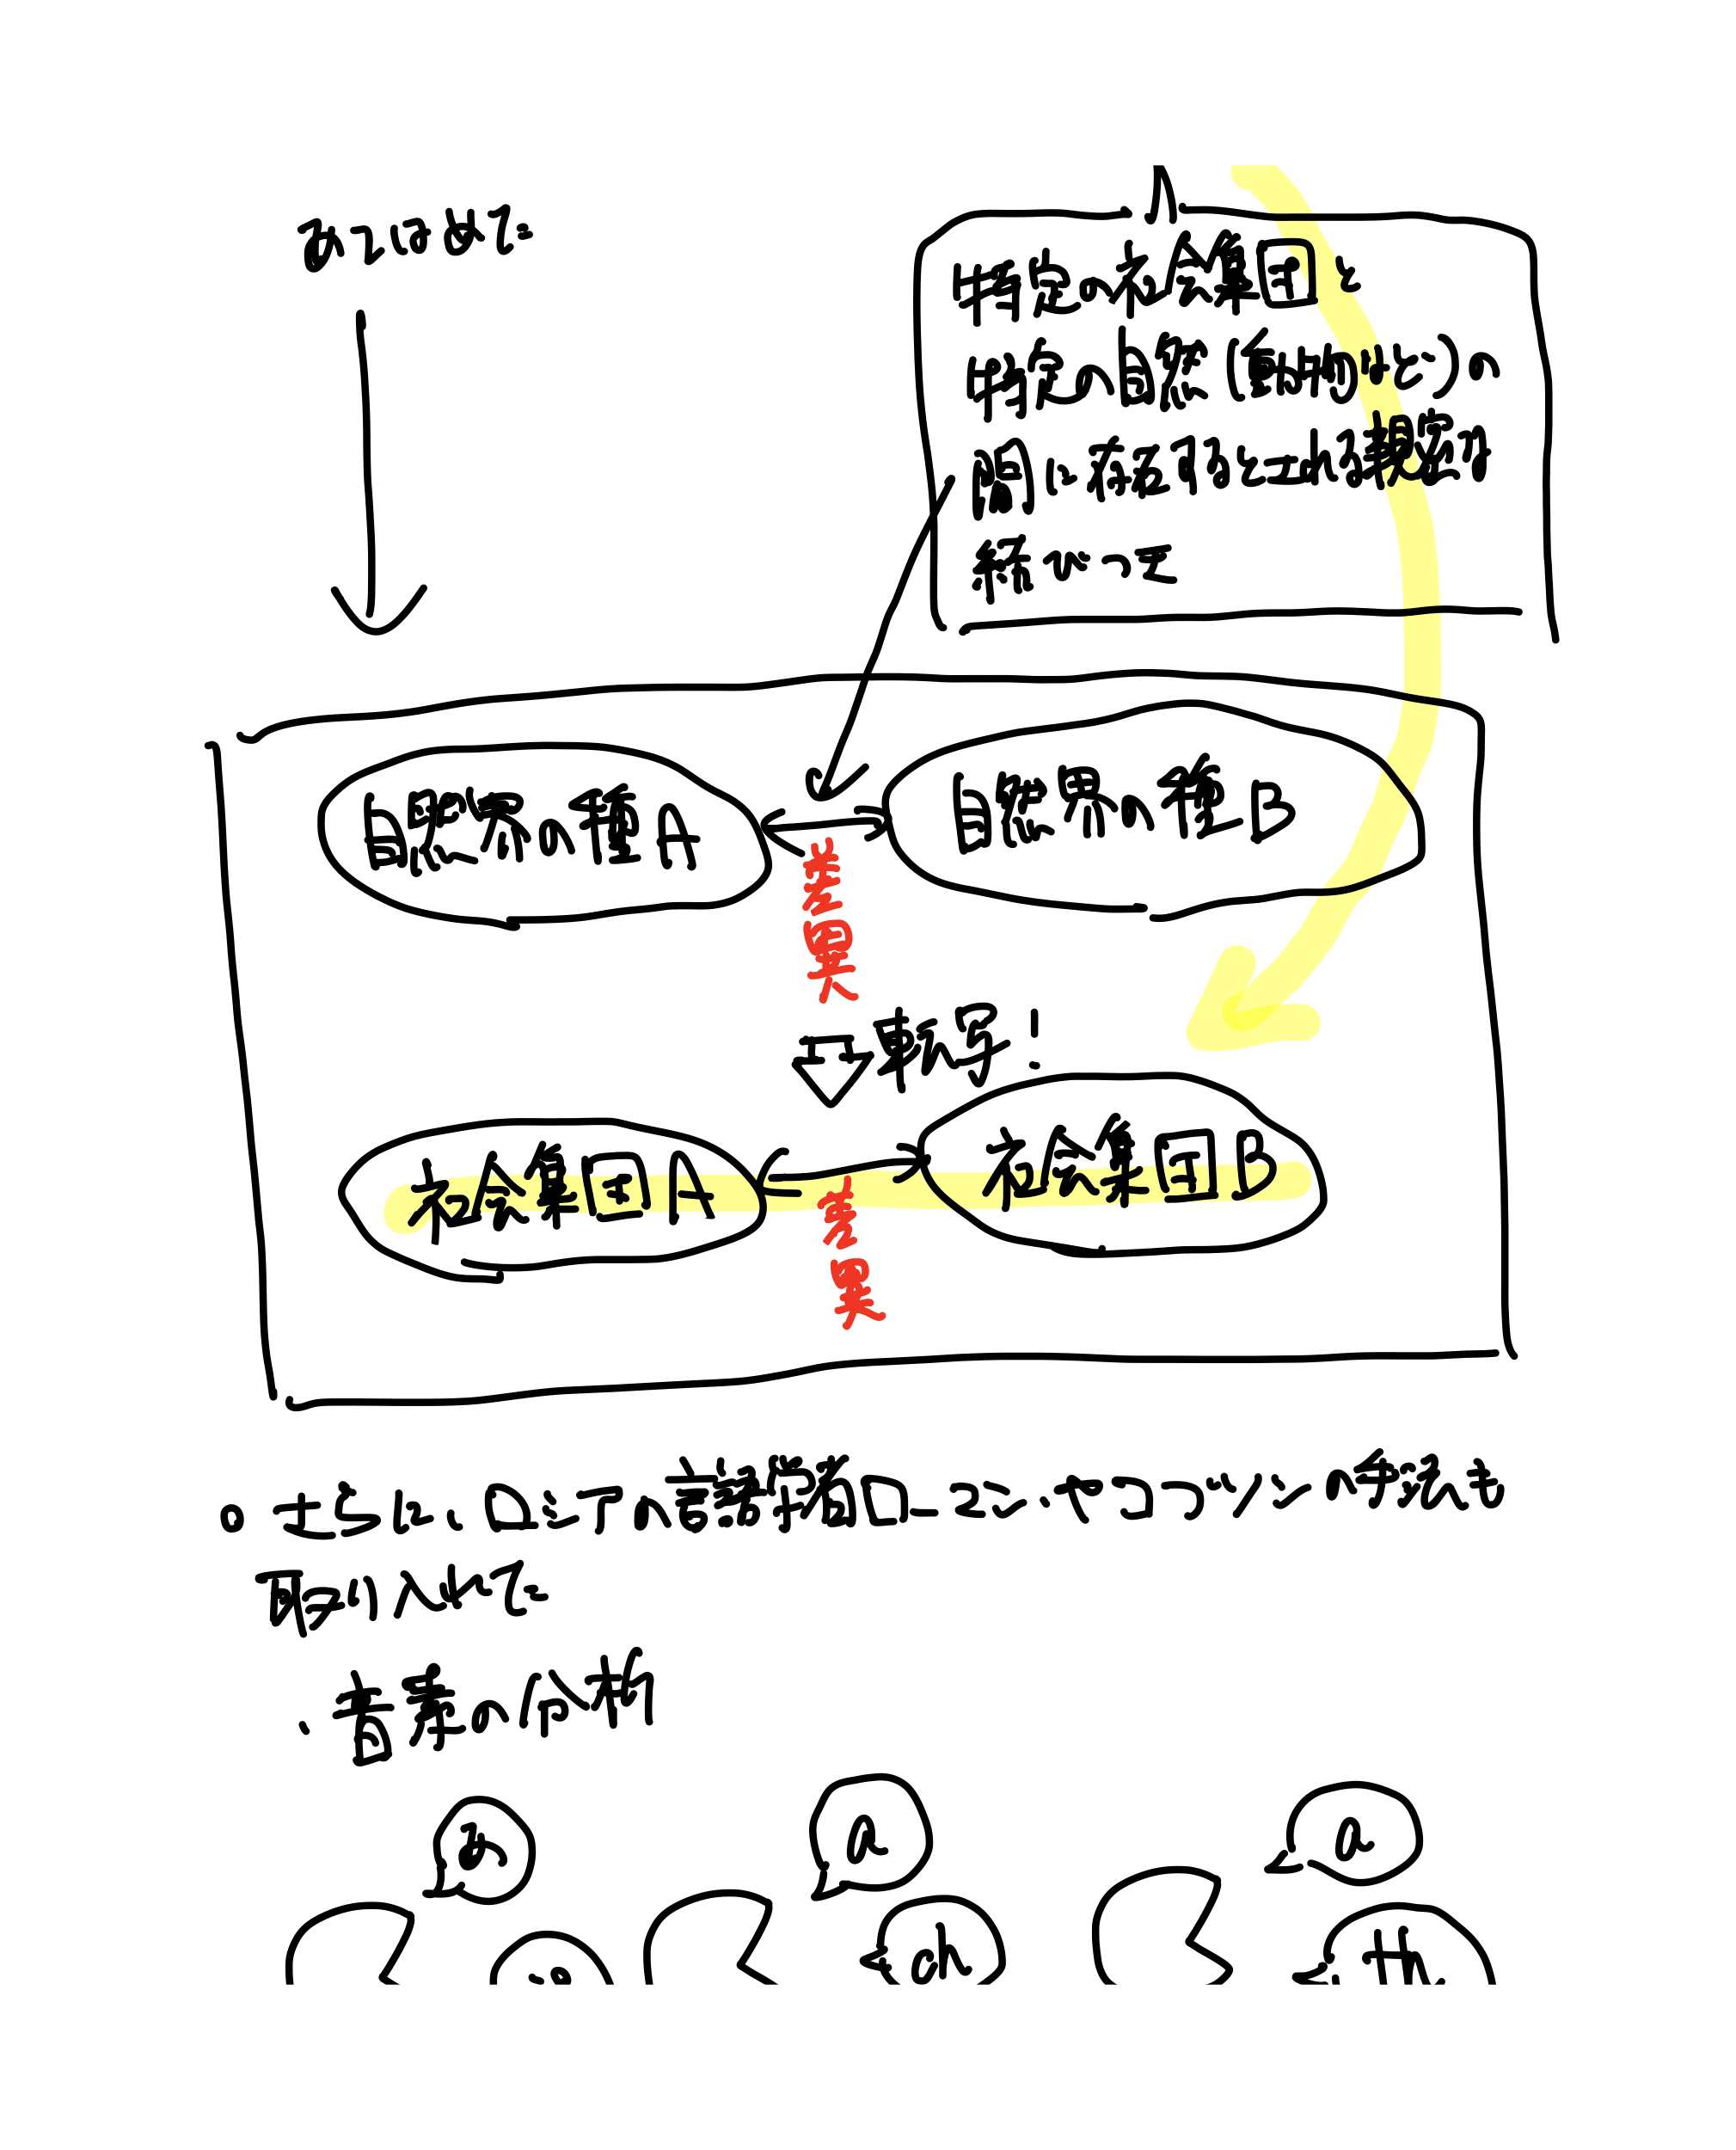 あてはめて
特定の社会集団と
特定の自然(動植物など)の
間に存在するとされる観念的
結びつき
自然界の種A
自然界の種B
差異
転写!
社会集団A
社会集団B
差異
さらに、ロシアの言語学者ロマン・ヤコブソンの手法も
取り入れて
・音素の分析
あ
a
a
ah